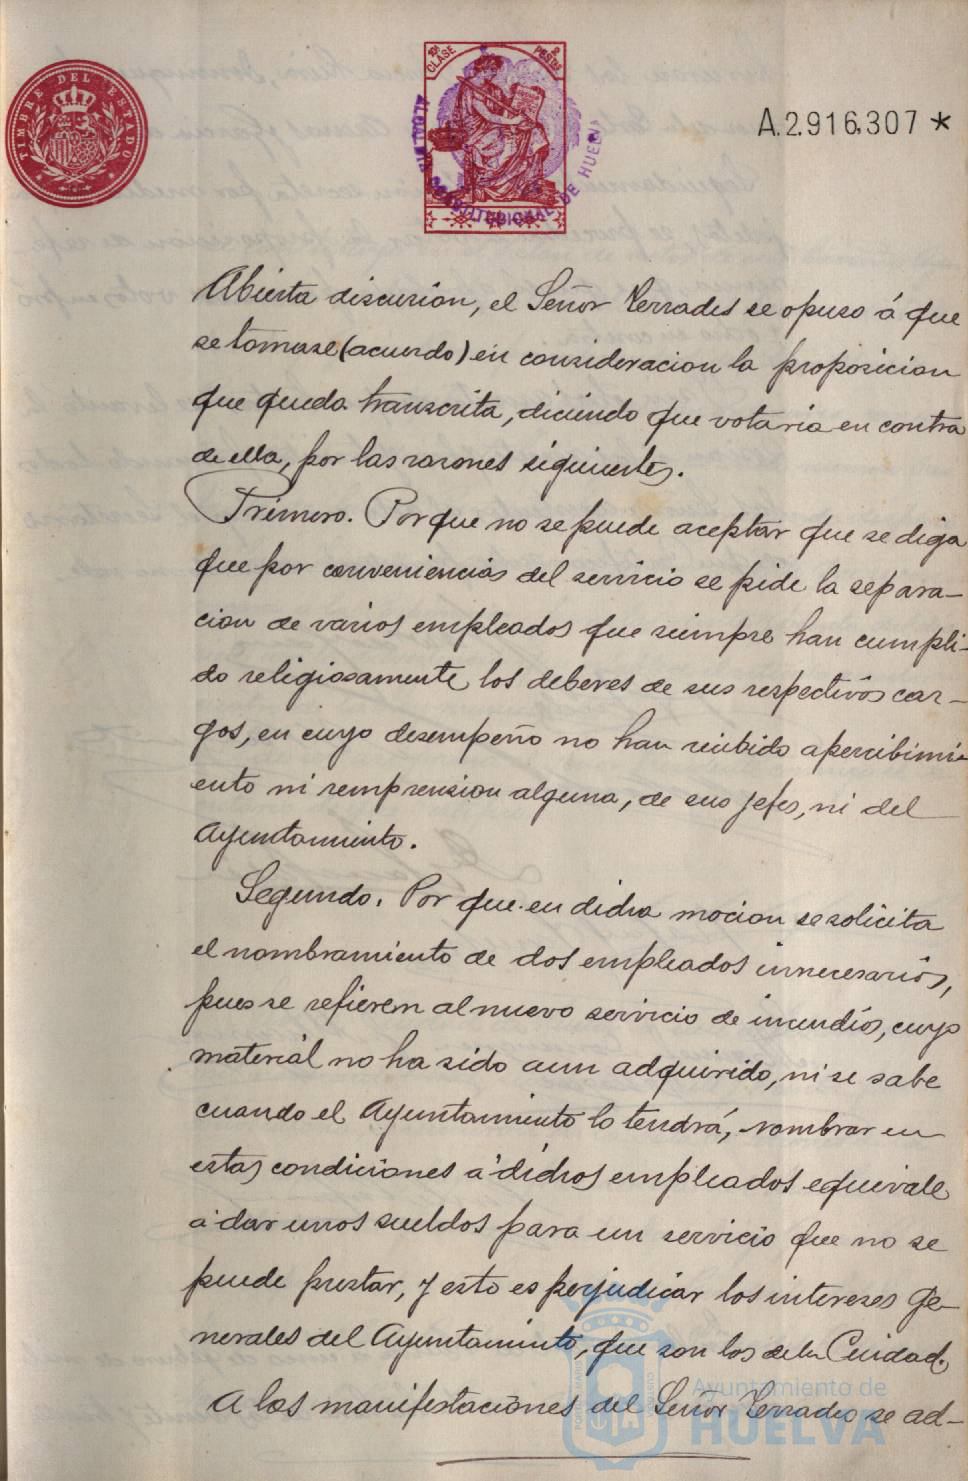 TIMBRE DEL ESTADO
10ª CLASE 2 PESETAS
ALCALDIA CONSTITUCIONAL DE HUELVA
A.2.916.307 *
Abierta discusion, el Señor Terrades se opuso á que
se tomase (acuerdo) en consideracion la proposicion
que queda transcrita, diciendo que votaria en contra
de ella, por las razones siguientes.
Primero. Porque no se puede aceptar que se diga
que por conveniencias del servicio se pide la separa-
cion de varios empleados que siempre han cumpli-
do religiosamente los deberes de sus respectivos car-
gos, en cuyo desempeño no han recibido apercibimi-
ento ni remprension alguna, de sus jefes, ni del
Ayuntamiento.
Segundo. Por que en dicha mocion se solicita
el nombramiento de dos empleados innecesarios,
pues se refieren al nuevo servicio de incendios, cuyo
material no ha sido aun adquirido, ni se sabe
cuando el Ayuntamiento lo tendrá, nombrar en
estas condiciones a dichos empleados equivale
a dar unos sueldos para un servicio que no se
puede prestar, y esto es perjudicar los intereses ge-
nerales del Ayuntamiento, que son los de la Ciudad.
A las manifestaciones del Señor Terrades se ad-
Ayuntamiento de
HUELVA